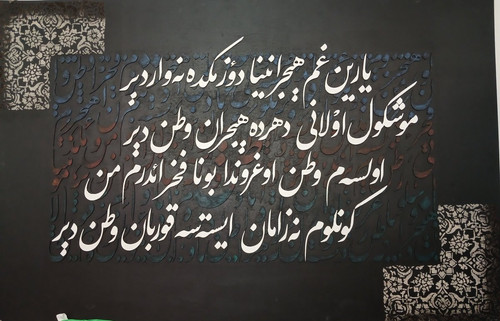 یارین غم هیجرانینا دؤزمکده نه واردیر
موشکول اوْلانی دهرده هیجران وطن دیر
اولسه م وطن اوغروندا بونا فخر ائدرم من
کونلوم نه زامان ایسته سه قوربان وطن دیر